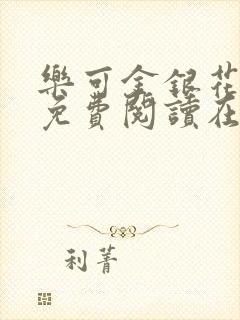 樂可金銀花
免費閱讀在
利菁